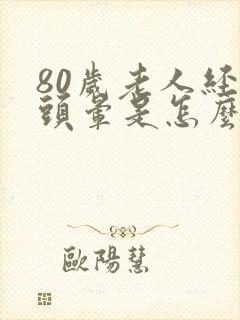 80歲老人經
頭暈是怎麼
歐陽慧